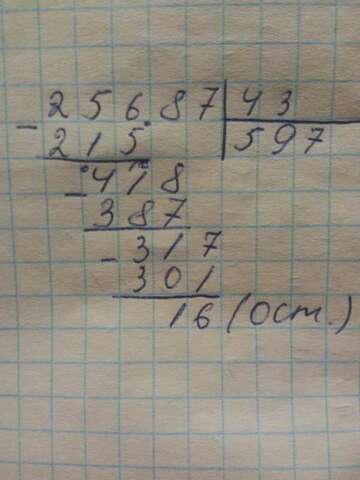 25687 43
- 215 597
- 418
387
- 317
301
16 (ост.)